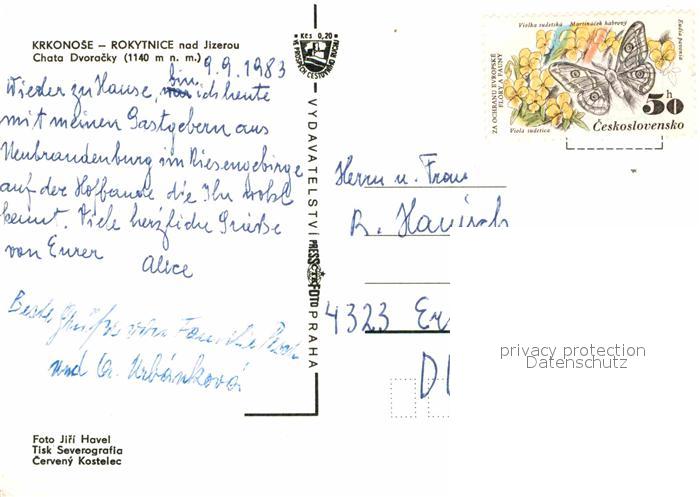 KRKONOŠE – ROKYTNICE nad Jizerou
Chata Dvoračky (1140 m n. m.)
9. 9. 1983
Wieder zu Hause, bin ich heute
mit meinen Gastgebern aus
Neubrandenburg im Riesengebirge
auf der Hofbaude die Ihr wohl
kennt. Viele herzliche Grüße
von Eurer
Alice
Beste Grüße von Familie
und A. Urbánková
Foto Jiří Havel
Tisk Severografia
Červený Kostelec
Kčs 0,20
VE PROSPĚCH CESTOVNÍHO RUCHU
VYDAVATELSTVÍ PRESSFOTO PRAHA
Violka sudetská Martináček habrový
Eudia pavonia
ZA OCHRANU EVROPSKÉ
FLÓRY A FAUNY
Viola sudetica
50 h
Československo
Herrn u. Frau
R.
4323 Er
privacy protection
Datenschutz